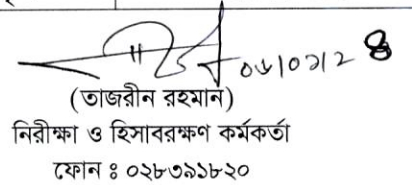 (তাজরীন রহমান)
নিরীক্ষা ও হিসাবরক্ষণ কর্মকর্তা
ফোন ঃ ০২৮৩৯১৮২০